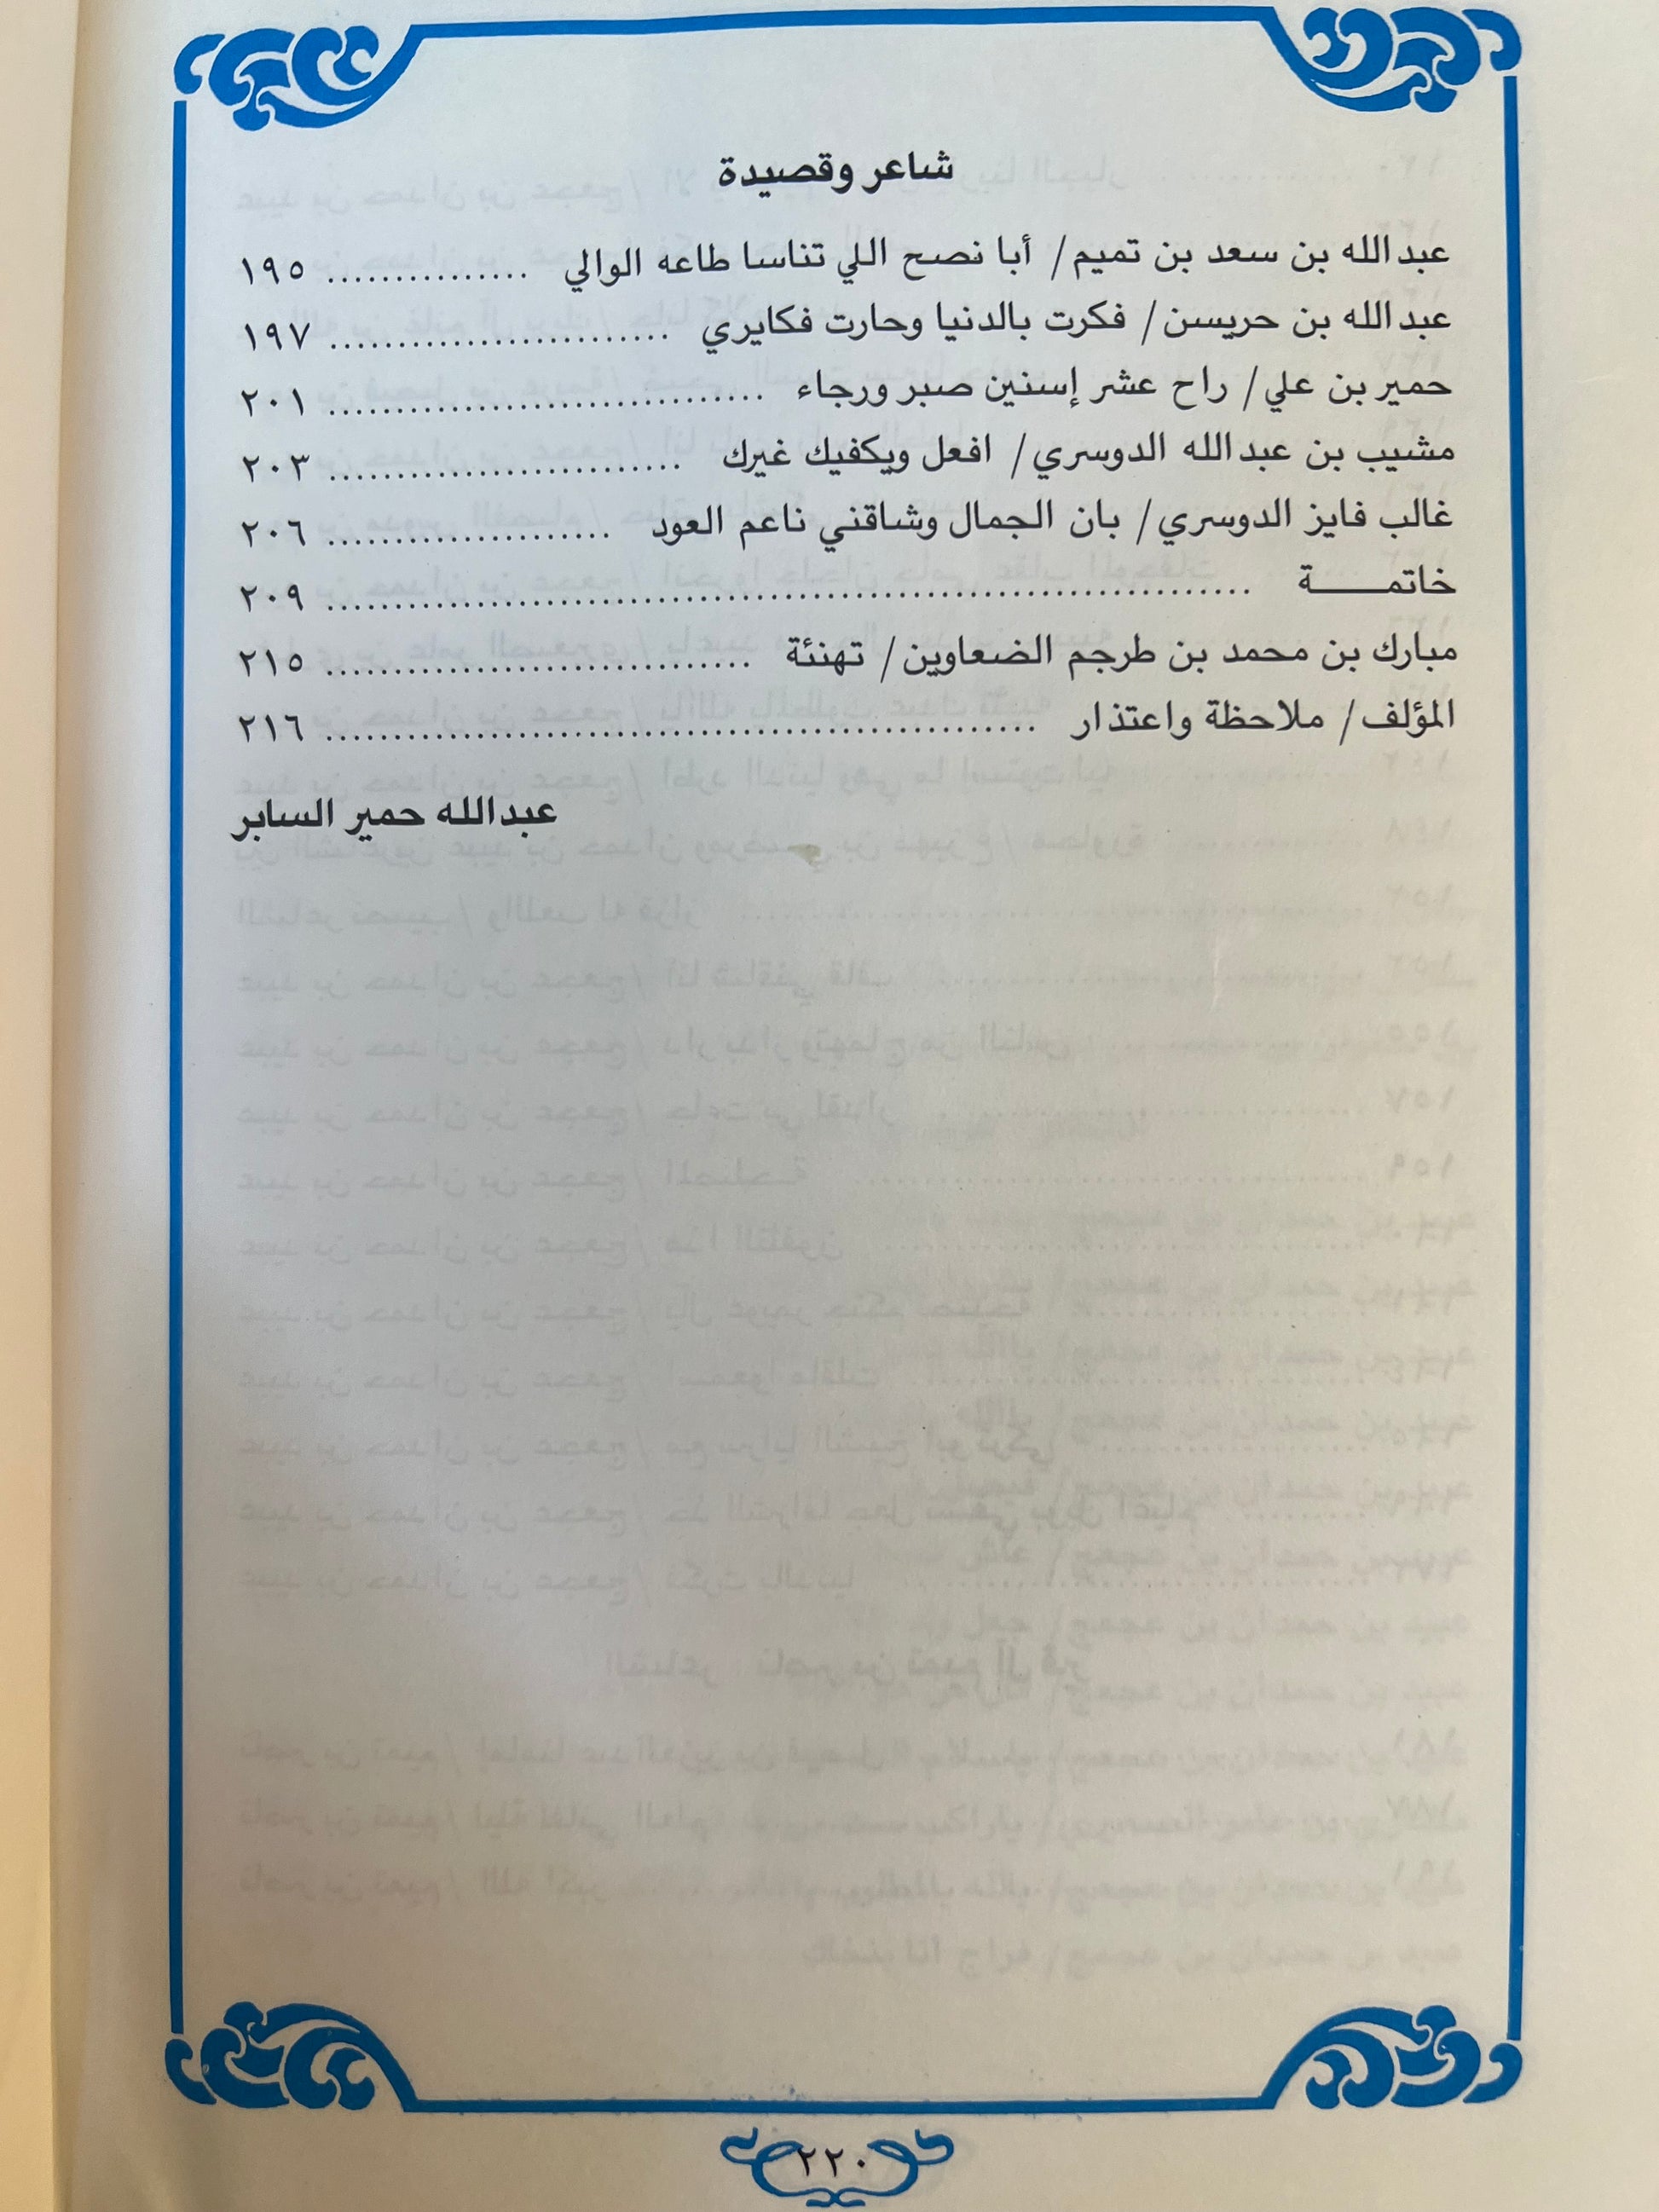 شاعر وقصيدة
عبدالله بن سعد بن تميم/ أبا نصح اللي تناسا طاعه الوالي ............... ١٩٥
عبدالله بن حريسن/ فكرت بالدنيا وحارت فكايري ......................... ١٩٧
حمير بن علي/ راح عشر إسنين صبر ورجاء ................................ ٢٠١
مشيب بن عبدالله الدوسري/ افعل ويكفيك غيرك .......................... ٢٠٣
غالب فايز الدوسري/ بان الجمال وشاقني ناعم العود ..................... ٢٠٦
خاتمـــــة .................................................................... ٢٠٩
مبارك بن محمد بن طرجم الضعاوين/ تهنئة ............................... ٢١٥
المؤلف/ ملاحظة واعتذار .................................................... ٢١٦
عبدالله حمير السابر
٢٢٠